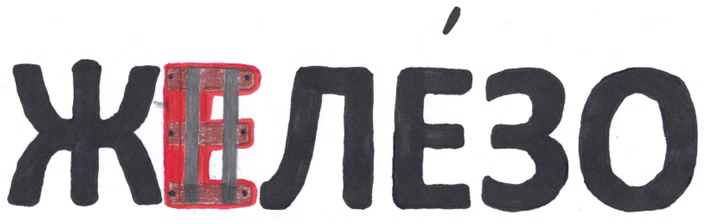 ЖЕЛЕ́ЗО